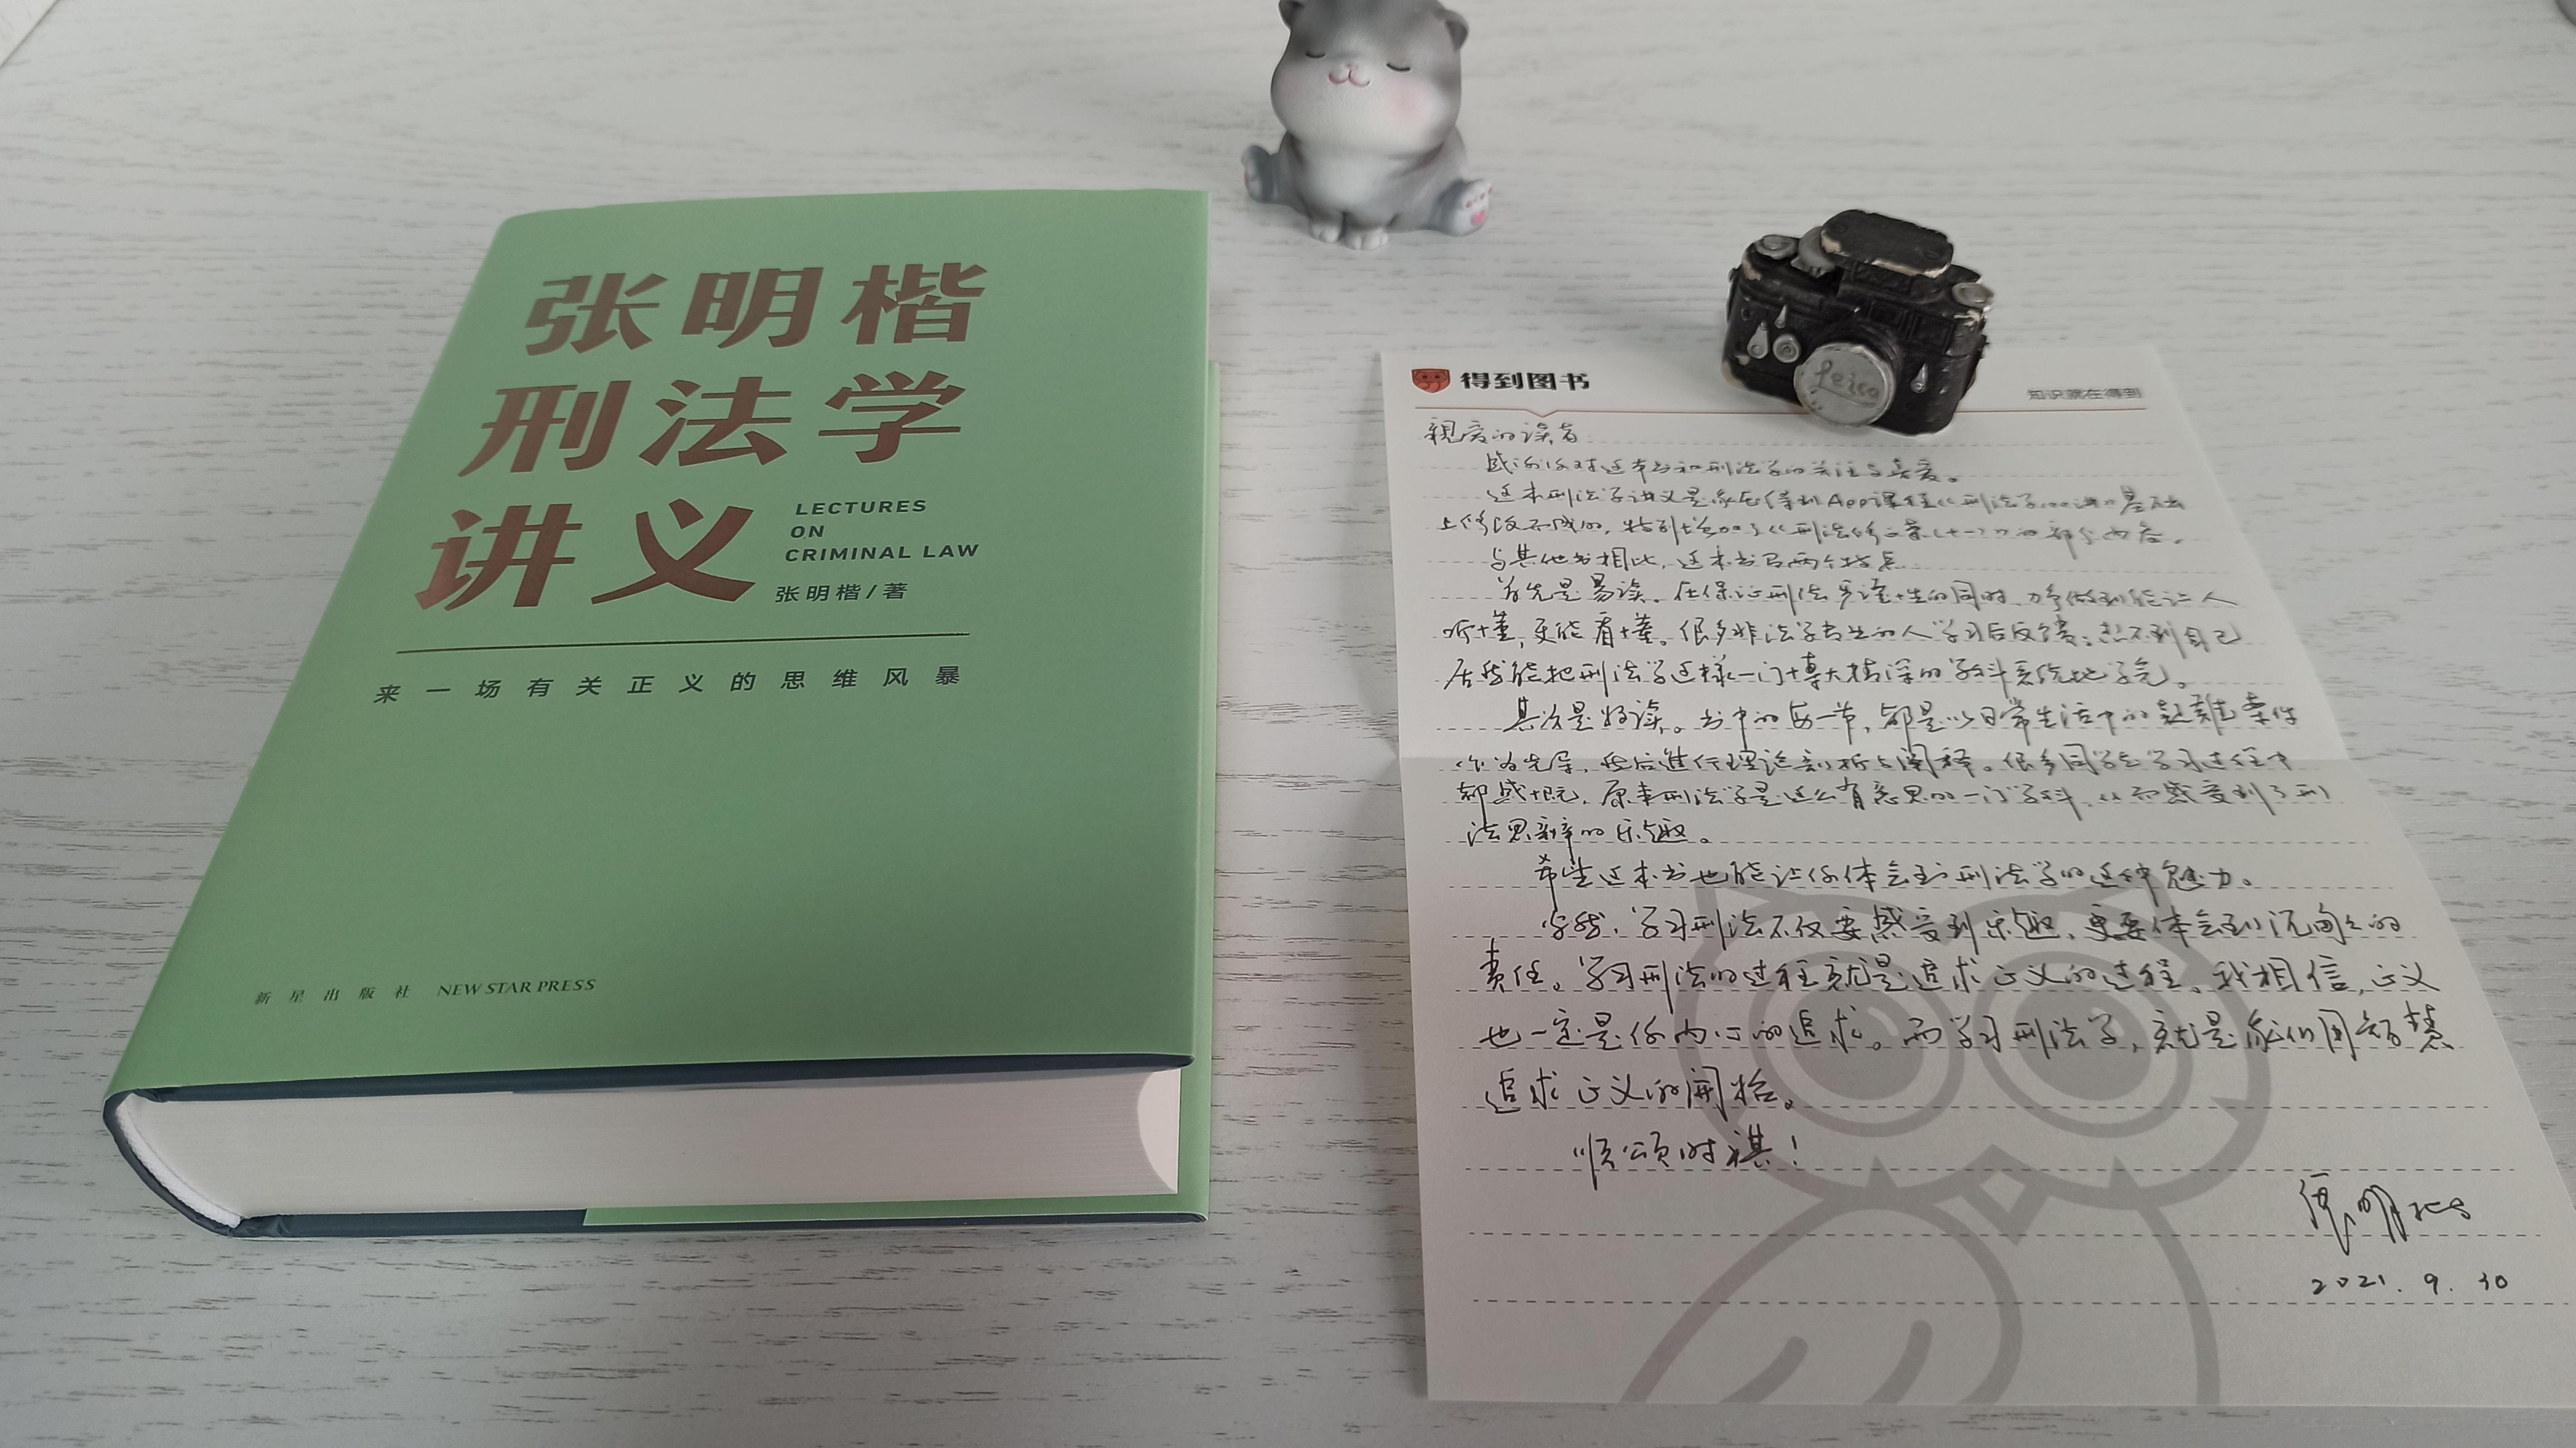 张明楷
刑法学
讲义
LECTURES
ON
CRIMINAL LAW
张明楷/著
来一场有关正义的思维风暴
新星出版社 NEW STAR PRESS
Leica
得到图书
知识就在得到
親爱的读者
感谢你对这本书和刑法学的关注与喜爱。
这本刑法学讲义是我在得到App课程《刑法学100讲》基础
上修改而成的，特别增加了《刑法修正案(十一)》的部分内容。
与其他书相比，这本书有两个特点
首先是易读。在保证刑法严谨性的同时，力争做到能让人
听懂，更能看懂。很多非法学专业的人学习后反馈：想不到自己
居然能把刑法学这樣一门博大精深的学科系统地学完。
其次是好读。书中的每一节，都是以日常生活中的疑難案件
作为先导，然后進行理论剖析与阐释。很多同学在学习过程中
都感慨，原来刑法学是这么有意思的一门学科，从而感受到了刑
法思辩的乐趣。
希望这本书也能让你体会到刑法学的这种魅力。
当然，学习刑法不仅要感受到乐趣，更要体会到沉甸甸的
责任。学习刑法的过程就是追求正义的过程。我相信，正义
也一定是你内心的追求。而学习刑法学，就是我们用智慧
追求正义的開始。
顺颂时祺！
張明楷
2021.9.30